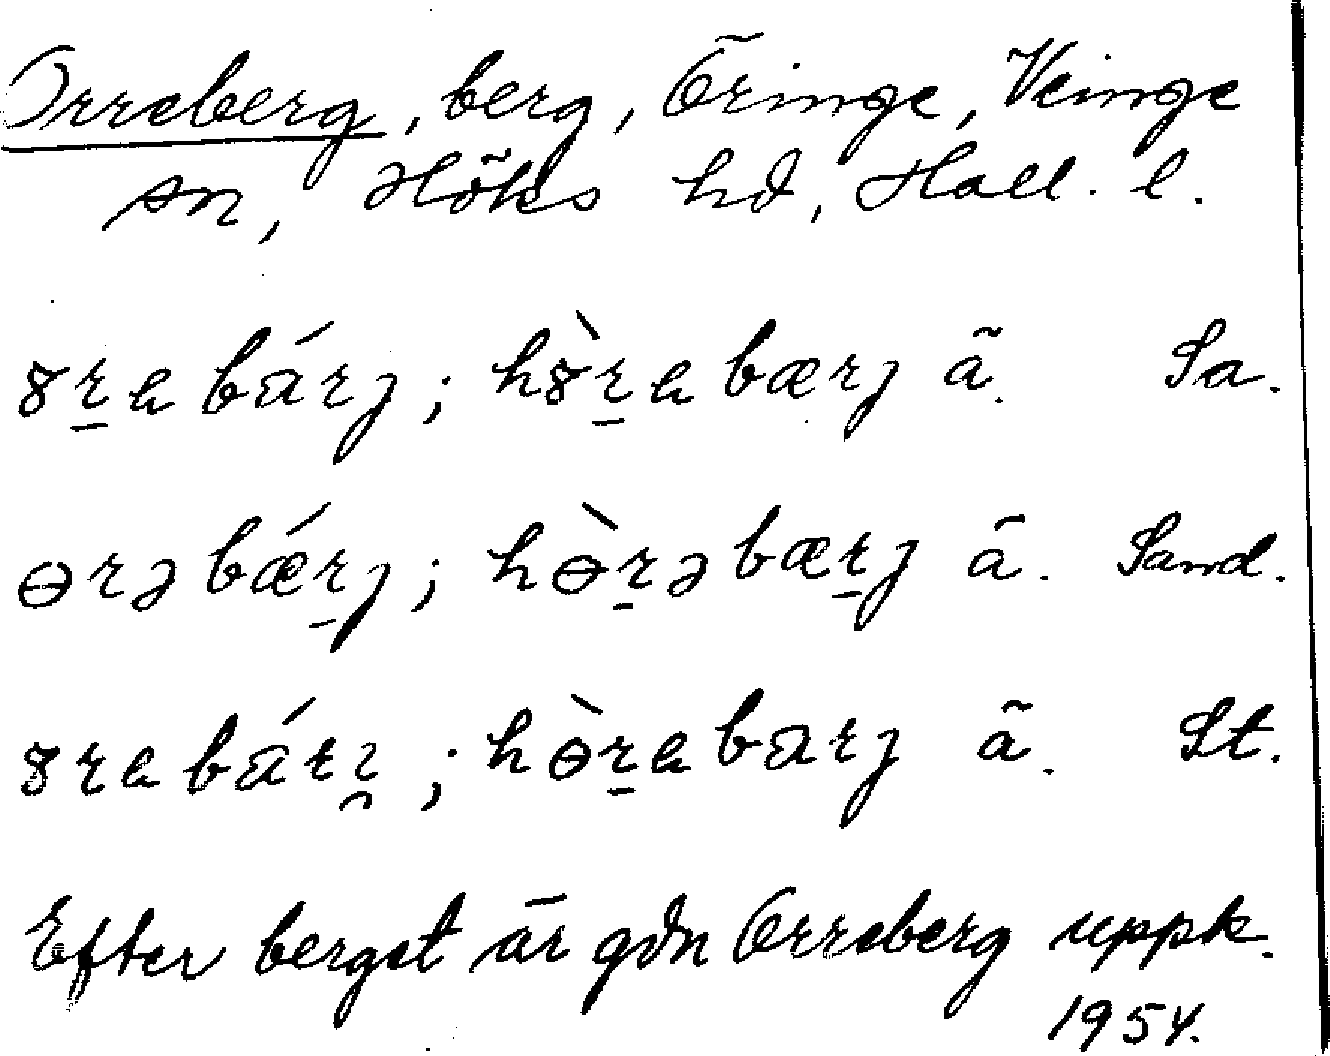 Orreberg, berg, Öringe, Veinge
sn, Höks hd, Hall. l.
ȣr̠ɐbárȷ; hȣ̀r̠ɐbærȷ ã. Sa.
ɵrəbǽr̠ȷ; hɵ̀r̠əbær̠ȷ ã. Sand.
ȣrɐbárʅ̯; hɵ̀r̠ɐbarȷ ã. St.
Efter berget är gdn Orreberg uppk.
1954.